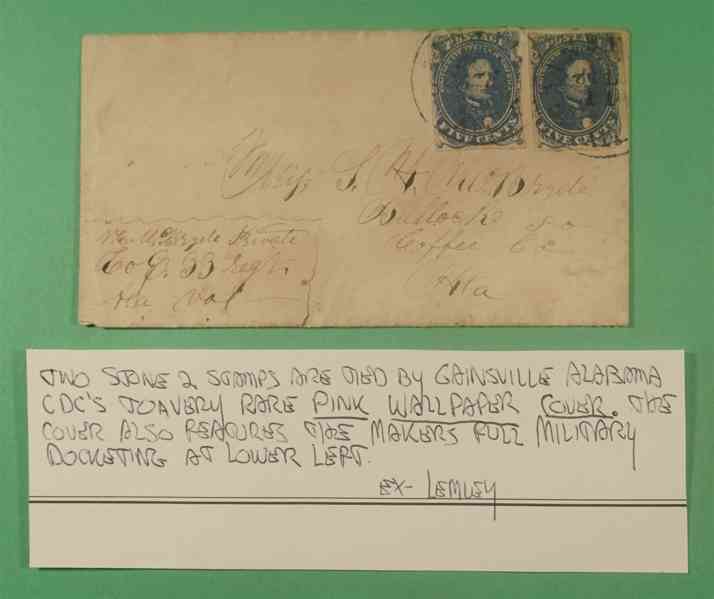 POSTAGE POSTAGE
FIVE CENTS FIVE CENTS
S. H. McBryde
Bullocks
Coffee Co
Ala
McBryde Private
Co G. 33 Regt.
Ala Vol
TWO STONE 2 STAMPS ARE TIED BY GAINSVILLE ALABAMA
CDC'S TO A VERY RARE PINK WALLPAPER COVER. THE
COVER ALSO FEATURES THE MAKERS FULL MILITARY
DOCKETING AT LOWER LEFT.
EX- LEMLEY